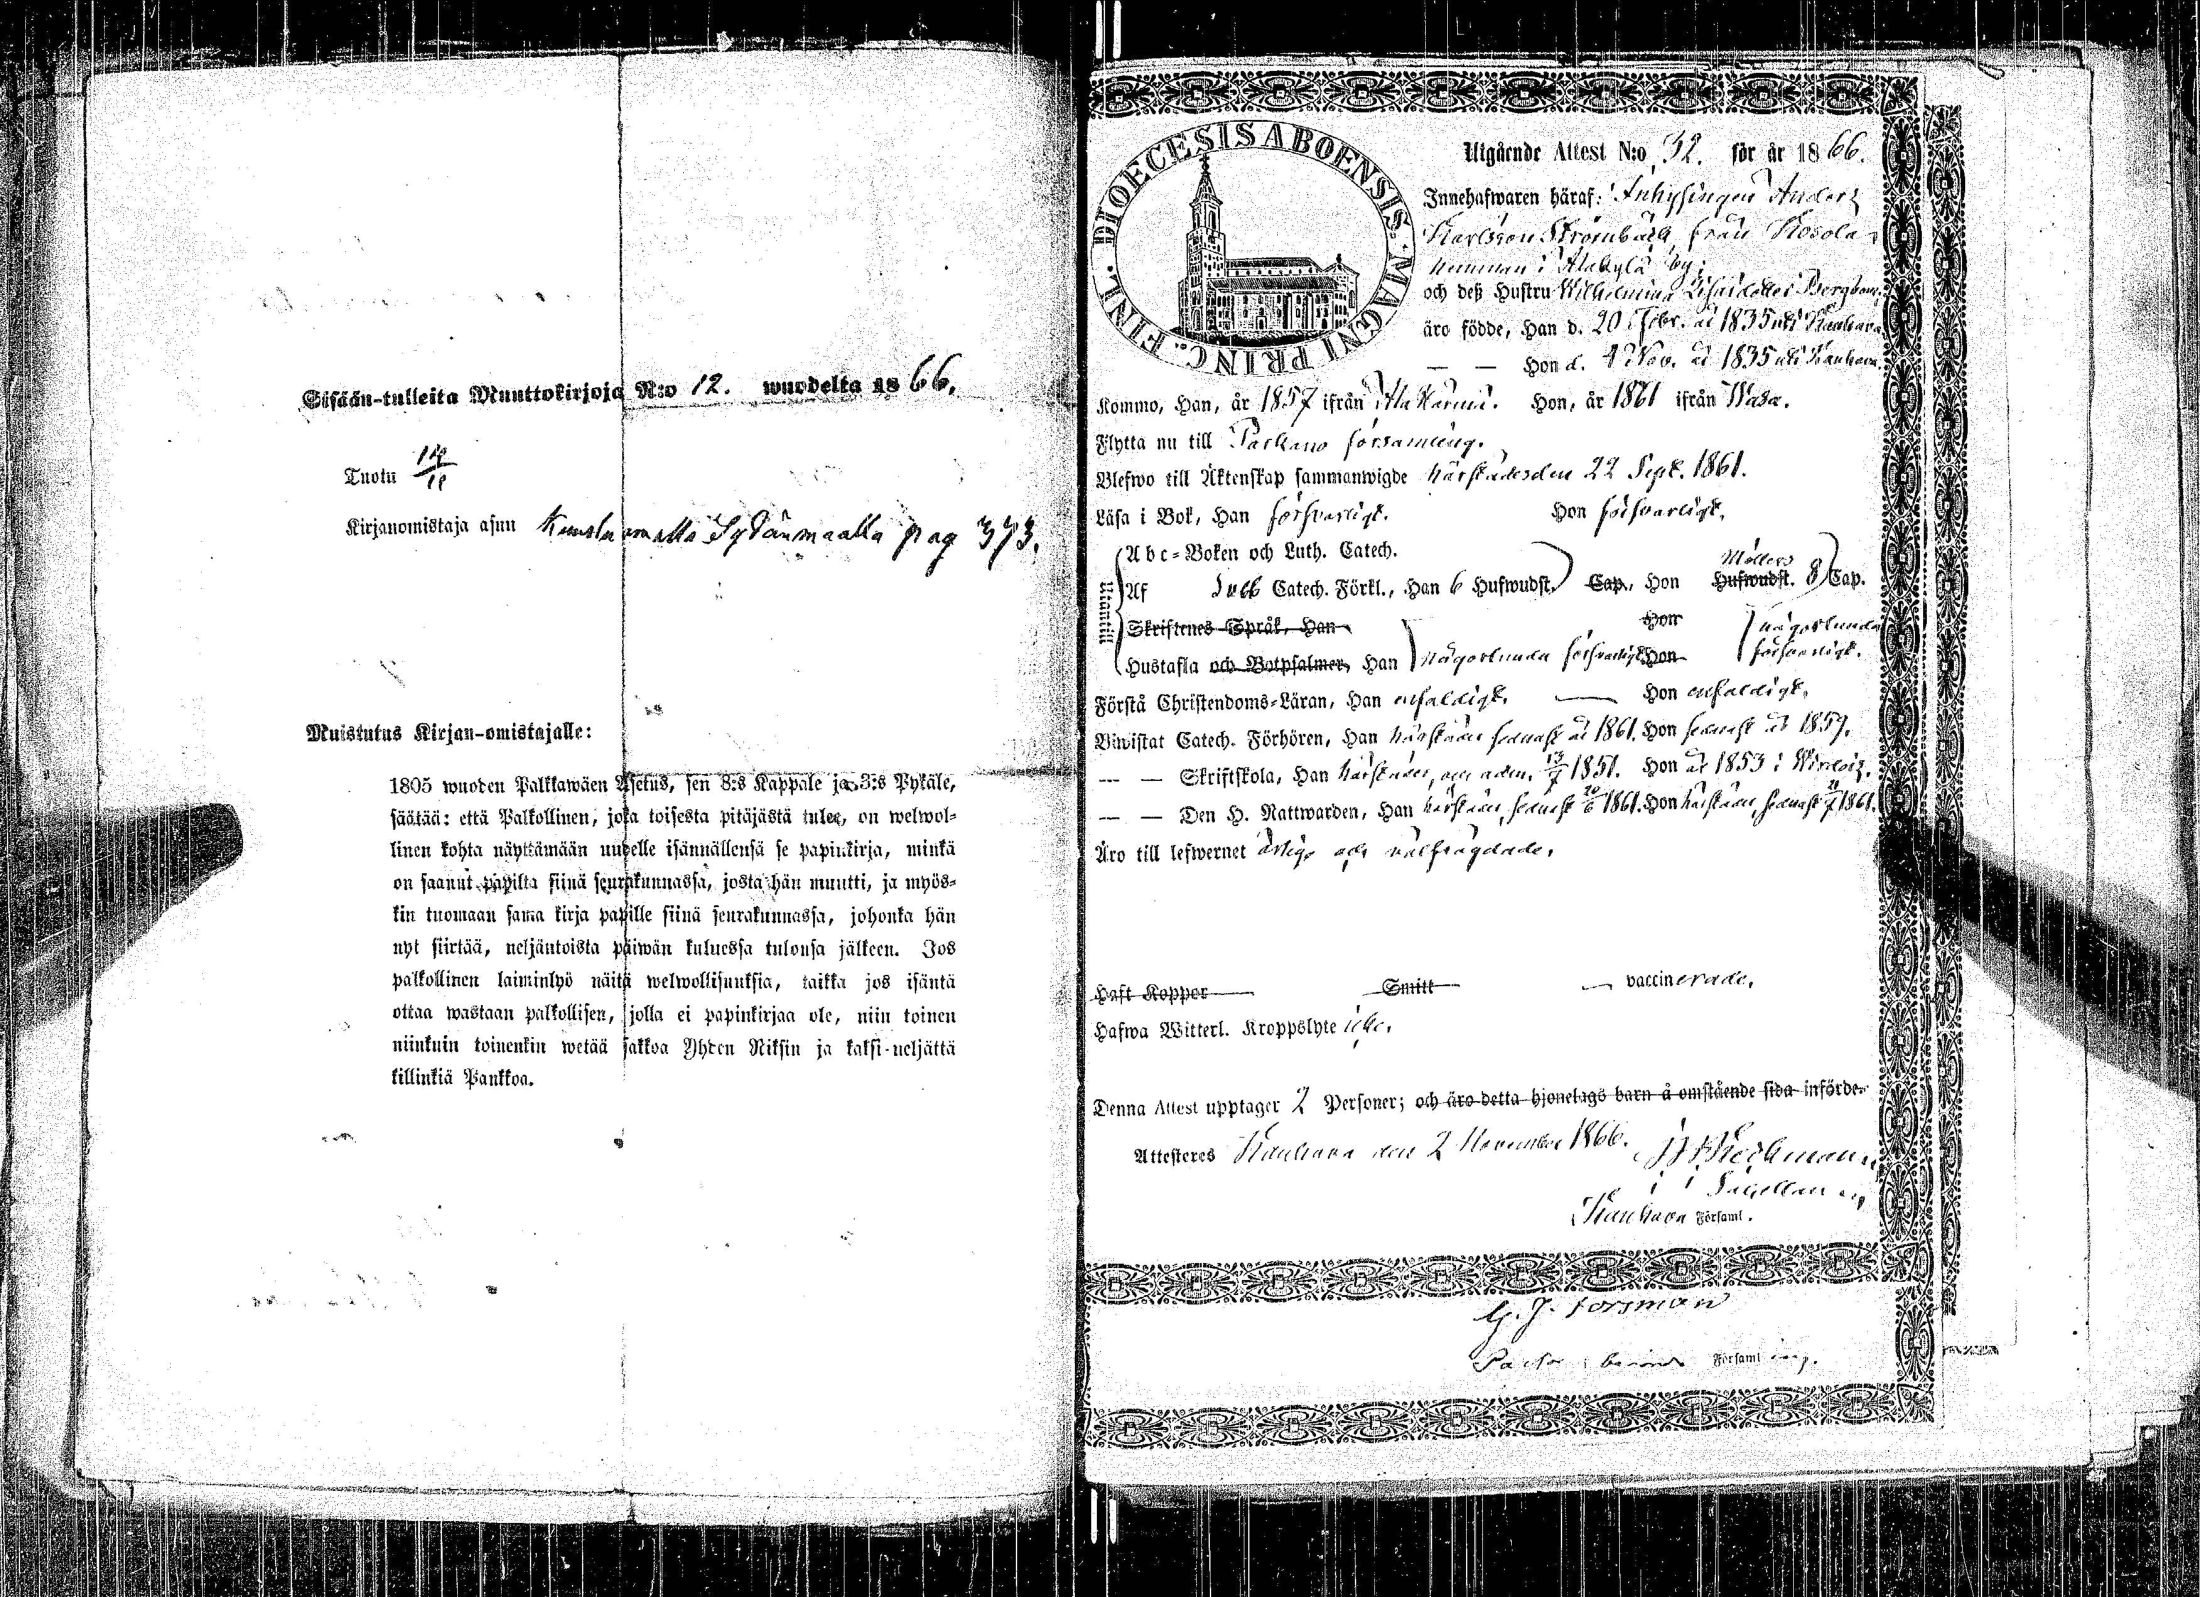 Sisään-tulleita Muuttokirjoja N:o 12. wuodelta 1866.
Tuotu
Kirjanomistaja asuu Sydänmaalla pag 373.
Muistutus Kirjan-omistajalle:
1805 wuoden Palkkawäen Asetus, sen 8:s Kappale ja 3:s Pykäle,
säätää: että Palkollinen, joka toisesta pitäjästä tulee, on welwol-
linen kohta näyttämään uudelle isännällensä se papinkirja, minkä
on saanut papilta siinä seurakunnassa, josta hän muutti, ja myös-
kin tuomaan sama kirja papille siinä seurakunnassa, johonka hän
nyt siirtää, neljäntoista päiwän kuluessa tulonsa jälkeen. Jos
palkollinen laiminlyö näitä welwollisuuksia, taikka jos isäntä
ottaa wastaan palkollisen, jolla ei papinkirjaa ole, niin toinen
niinkuin toinenkin wetää sakkoa Yhden Riksin ja kaksi-neljättä
killinkiä Pankkoa.
DIOECESIS ABOENSIS. MAGNI PRINC. FINL.
Utgående Attest N:o 32. för år 1866.
Innehafwaren häraf: Inhysingen Anders
Karlsson Strömbäck från Kosola
hemman i Alakylä by;
och deß Hustru Wilhelmina Bergbom,
äro födde, Han d. 20 Febr. år 1835 uti Kauhava
— — Hon d. 4 Nov. år 1835 uti Kauhava.
Kommo, Han, år 1857 ifrån Ala Härmä. Hon, år 1861 ifrån Wasa.
Flytta nu till Parkano församling.
Blefwo till Äktenskap sammanwigde härstädes den 22 Sept. 1861.
Läsa i Bok, Han försvarligt. Hon försvarligt.
Utantill
Abc-Boken och Luth. Catech.
Af Catech. Förkl., Han 6 Hufwudst. Cap., Hon Möllers Hufwudst. 8 Cap.
Skriftenes Språk, Han Hon någorlunda
Hustafla och Botpsalmer, Han någorlunda försvarligt Hon försvarligt.
Förstå Christendoms-Läran, Han enfaldigt. — Hon enfaldigt.
Biwistat Catech. Förhören, Han härstädes senast år 1861. Hon senast år 1859.
— — Skriftskola, Han härstädes, 1851. Hon år 1853 i
— — Den H. Nattwarden, Han härstädes, senast 1861. Hon härstädes, senast 1861.
Äro till lefwernet ärlige och välfrägdade.
Haft Koppor — Smitt — vaccinerade.
Hafwa Witterl. Kroppslyte icke.
Denna Attest upptager 2 Personer; och äro detta hjonelags barn å omstående sida införde.
Attesteres Kauhava den 2 November 1866.
Kauhava Församl.
G. J. Forsman
Församling.